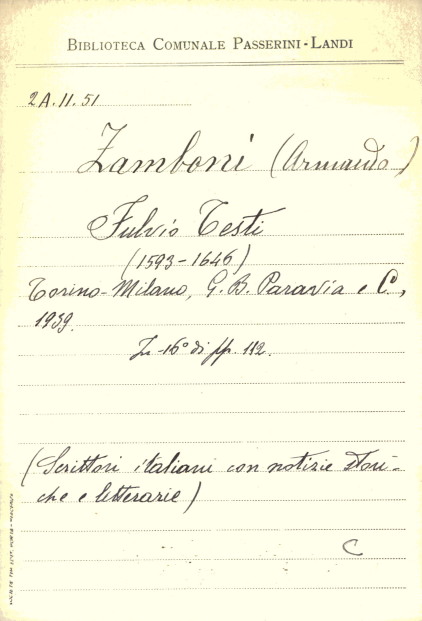 BIBLIOTECA COMUNALE PASSERINI-LANDI
2A.11.51
Zamboni (Armando)
Fulvio Testi
(1593-1646)
Torino-Milano, G. B. Paravia e C.,
1939.
In-16° di pp. 112.
(Scrittori italiani con notizie stori-
che e letterarie)
C